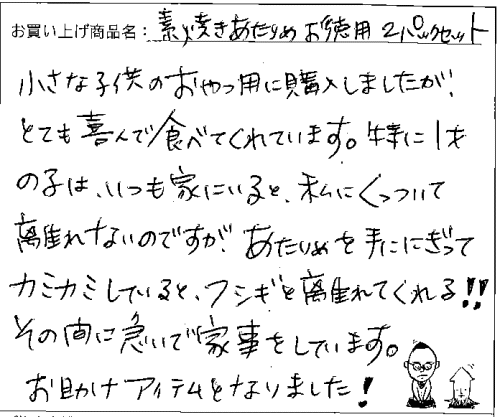 お買い上げ商品名：素焼きあたりめお徳用2パックセット
小さな子供のおやつ用に購入しましたが、
とても喜んで食べてくれています。特に1才
の子は、いつも家にいると、私にくっついて
離れないのですが、あたりめを手ににぎって
カミカミしていると、フシギと離れてくれる!!
その間に急いで家事をしています。
お助けアイテムとなりました!